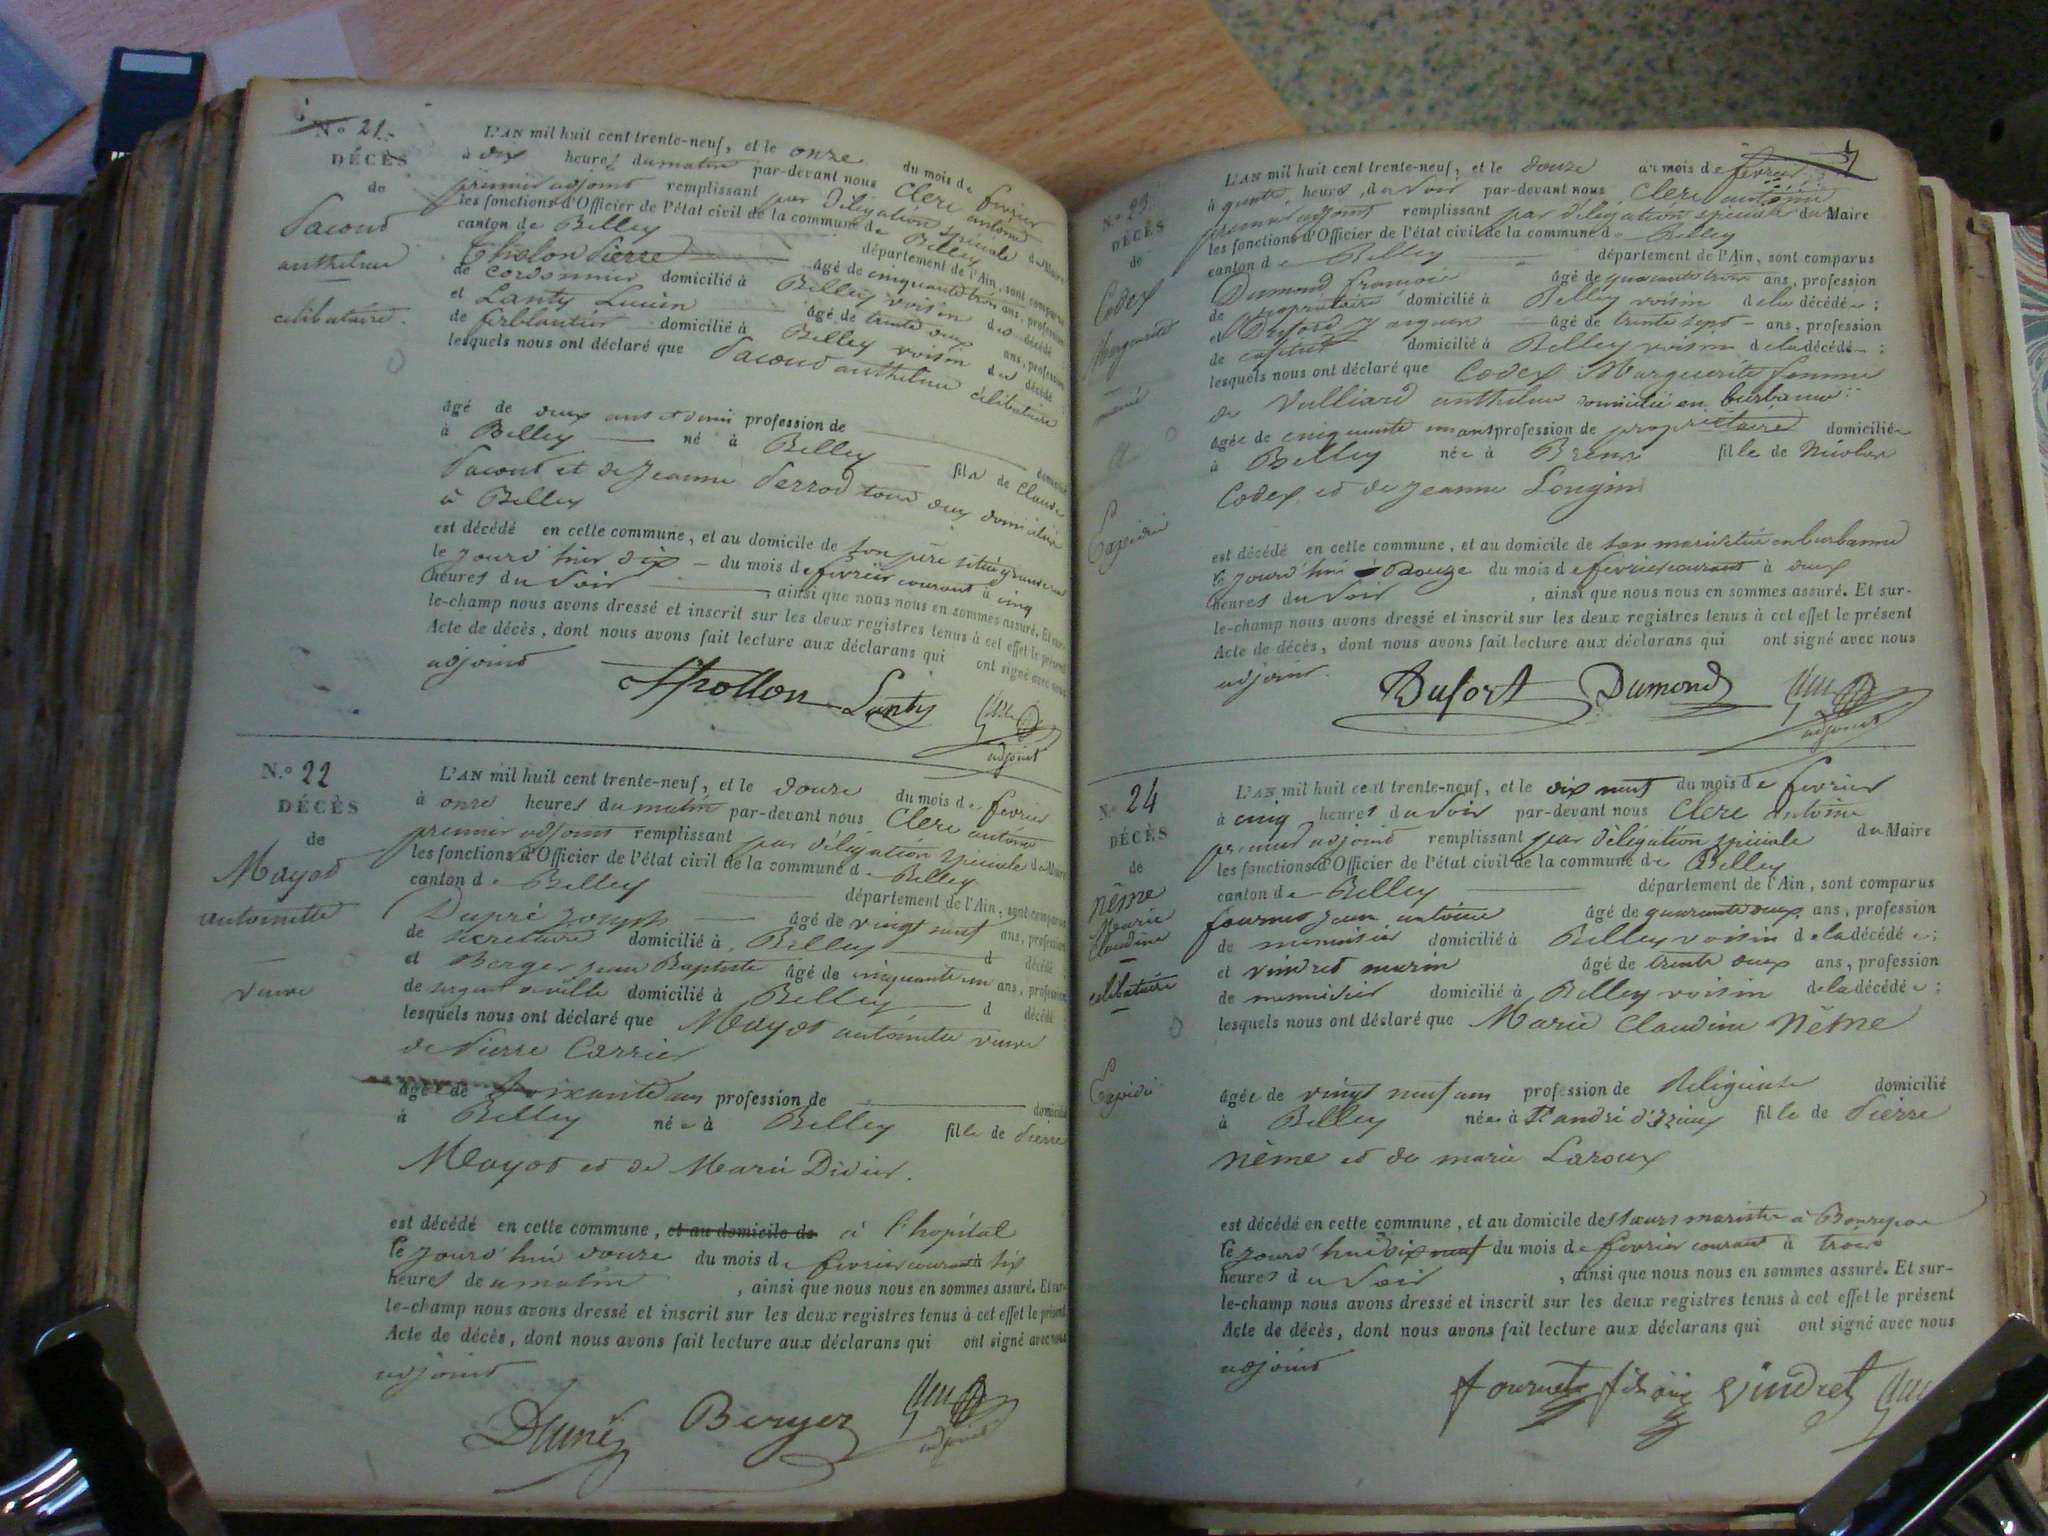 N.o 21.
DÉCÈS
de
Pacoud
anthelme
célibataire.
L'AN mil huit cent trente-neuf, et le onze du mois de fevrier
à dix heures du matin par-devant nous Clerc antoine
premier adjoint remplissant par délégation spéciale du Maire
les fonctions d'Officier de l'état civil de la commune de Belley
canton de Belley département de l'Ain, sont comparus
Pierre âgé de cinquante trois ans, profession
de cordonnier domicilié à Belley voisin du décédé
et Lanty Lucien âgé de trente deux ans, profession
de ferblantier domicilié à Belley voisin du décédé
lesquels nous ont déclaré que Pacoud anthelme célibataire
âgé de deux ans et demi profession de domicilié
à Belley né à Belley fils de Claude
Pacoud et de Jeanne Perrod tous deux domiciliés
à Belley
est décédé en cette commune, et au domicile de son père situé grande rue
le jourd'hier dix du mois de fevrier courant à cinq
heures du soir, ainsi que nous nous en sommes assuré. Et sur-
le-champ nous avons dressé et inscrit sur les deux registres tenus à cet effet le présent
Acte de décès, dont nous avons fait lecture aux déclarans qui ont signé avec nous
adjoint
Lanty
adjoint
N.o 22
DÉCÈS
de
Mayot
antoinette
veuve
L'AN mil huit cent trente-neuf, et le douze du mois de fevrier
à onze heures du matin par-devant nous Clerc antoine
premier adjoint remplissant par délégation spéciale du Maire
les fonctions d'Officier de l'état civil de la commune de Belley
canton de Belley département de l'Ain, sont comparus
Dupré Joseph âgé de vingt neuf ans, profession
de secrétaire domicilié à Belley d décédé
et Berger Jean Baptiste âgé de cinquante un ans, profession
de sergent de ville domicilié à Belley d décédé
lesquels nous ont déclaré que Mayot antoinette veuve
de Pierre Carrier
âgée de soixante ans profession de domicilié
à Belley née à Belley fille de Pierre
Mayot et de Marie Didier.
est décédé en cette commune, et au domicile de à l'hopital
le jourd'hui douze du mois de fevrier courant à six
heures de u matin, ainsi que nous nous en sommes assuré. Et sur-
le-champ nous avons dressé et inscrit sur les deux registres tenus à cet effet le présent
Acte de décès, dont nous avons fait lecture aux déclarans qui ont signé avec nous
adjoint
Berger
adjoint
N.o 23.
DÉCÈS
de
Codex
Marguerite
L'AN mil huit cent trente-neuf, et le douze du mois de fevrier
à quatre heures du soir par-devant nous Clerc antoine
premier adjoint remplissant par délégation spéciale du Maire
les fonctions d'Officier de l'état civil de la commune de Belley
canton de Belley département de l'Ain, sont comparus
Dumond françois âgé de quarante trois ans, profession
de propriétaire domicilié à Belley voisin de la décédée;
et Dufort Jacques âgé de trente sept ans, profession
de domicilié à Belley voisin de la décédée;
lesquels nous ont déclaré que Codex Marguerite femme
de Vulliard anthelme domicilié en burbanne
âgée de cinquante un ans profession de propriétaire domiciliée
à Belley née à Brens fille de Nicolas
Codex et de Jeanne Longin
est décédé en cette commune, et au domicile de son mari situé en burbanne
le jourd'hui douze du mois de fevrier courant à deux
heures du soir, ainsi que nous nous en sommes assuré. Et sur-
le-champ nous avons dressé et inscrit sur les deux registres tenus à cet effet le présent
Acte de décès, dont nous avons fait lecture aux déclarans qui ont signé avec nous
adjoint.
Dufort Dumond
adjoint
N.o 24
DÉCÈS
de
Nême
Marie
Claudine
célibataire
L'AN mil huit cent trente-neuf, et le dix neuf du mois de fevrier
à cinq heures du soir par-devant nous Clerc antoine
premier adjoint remplissant par délégation spéciale du Maire
les fonctions d'Officier de l'état civil de la commune de Belley
canton de Belley département de l'Ain, sont comparus
fournet jean antoine âgé de quarante deux ans, profession
de menuisier domicilié à Belley voisin de la décédée;
et vindret marin âgé de trente deux ans, profession
de menuisier domicilié à Belley voisin de la décédée;
lesquels nous ont déclaré que Marie Claudine Nême
âgée de vingt neuf ans profession de Religieuse domicilié
à Belley née à St andré fille de Pierre
nême et de marie Laroux
est décédé en cette commune, et au domicile des sœurs maristes à Bonrepos
le jourd'hui dix neuf du mois de fevrier courant à trois
heures du soir, ainsi que nous nous en sommes assuré. Et sur-
le-champ nous avons dressé et inscrit sur les deux registres tenus à cet effet le présent
Acte de décès, dont nous avons fait lecture aux déclarans qui ont signé avec nous
adjoint
fournet vindret